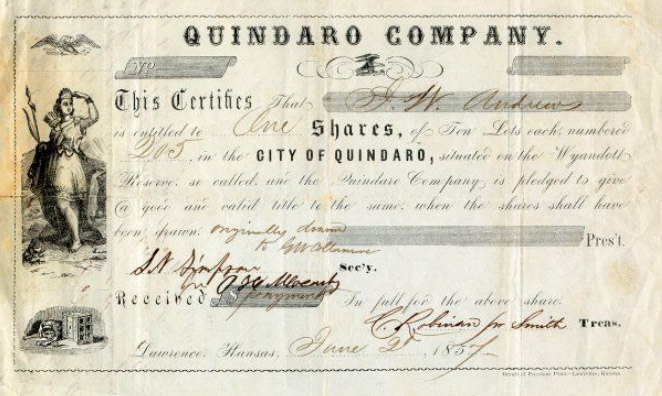 QUINDARO COMPANY.
No
This Certifies That J. W. Andrews
is entitled to One Shares, of Ten Lots each, numbered
205, in the CITY OF QUINDARO, situated on the Wyandott
Reserve, so called, and the Quindaro Company is pledged to give
a good and valid title to the same, when the shares shall have
been drawn. originally drawn
to Pres't.
S. N. Simpson Sec'y.
Received $ payment In full for the above share.
C. Robinson Smith Treas.
Lawrence, Kansas, June 2 1857